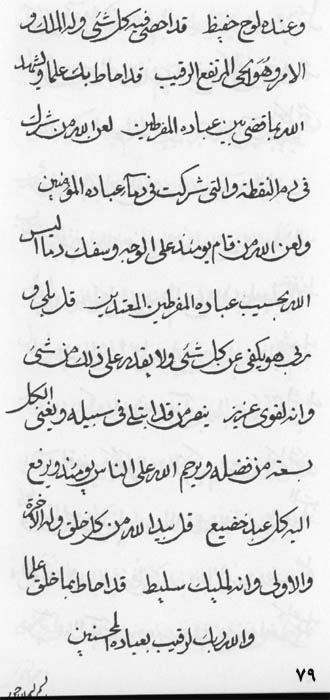 وعنده لوح حفيظ قد احصى فيه كل شئ وله الملك و
الامر وهو الحي المرتفع الرقيب قد احاط بك علما وليشهد
الله بما قضى بين عباده المفرطين لعن الله من شرك
في دم النقطه والتي شركت في دماء عباده المؤمنين
ولعن الله من قام يومئذ على الوجه وسفك دما اليس
الله بحسيب عباده المفرطين المعتدين قل بلى و
ربي هو يكفى عن كل شئ ولا يقدر على ذلك من شئ
وانه لقوى عزيز ينصر من قد ابتلى في سبيله ويغنى الكل
بسعته من فضله ويرحم الله على الناس يومئذ ويرفع
اليه كل عبد خضيع قل يبدا الله من كل خلق وله الاخرة
والاولى وانه لمليك سليط قد احاط بما خلق علما
والله ربك لرقيب بعباده المحسنين
٧٩